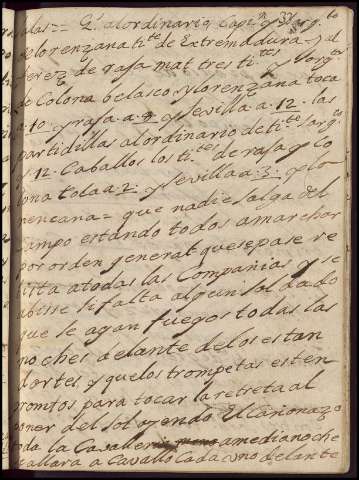 salas = G.l al ordinario Capi.n y sarg.to 37
de lorenzana ti.te de Extremadura = y al
ferez de rasa mat tres ti.tes y sarg.tos
do Colona belasco y lorenzana toca
a 10 y rasa a 9 y sevilla a 12 las
partidillas al ordinario de ti.te sarg.to
12 Caballos los ti.tes de rasa y Co
lona tola a 2 y sevilla a 3 y lo
renzana = que nadie salga del
Campo estando todos a marchar
por orden general que se pase re
bista a todas las Compañias y se
abisse si falta algun soldado
que se agan fuegos todas las
noches delante de los estan
dartes y que los trompetas esten
promtos para tocar la retreta al
poner del sol oyendo El Cañonazo
toda la Cavalleria a medianoche
se allara a Cavallo Cada uno delante